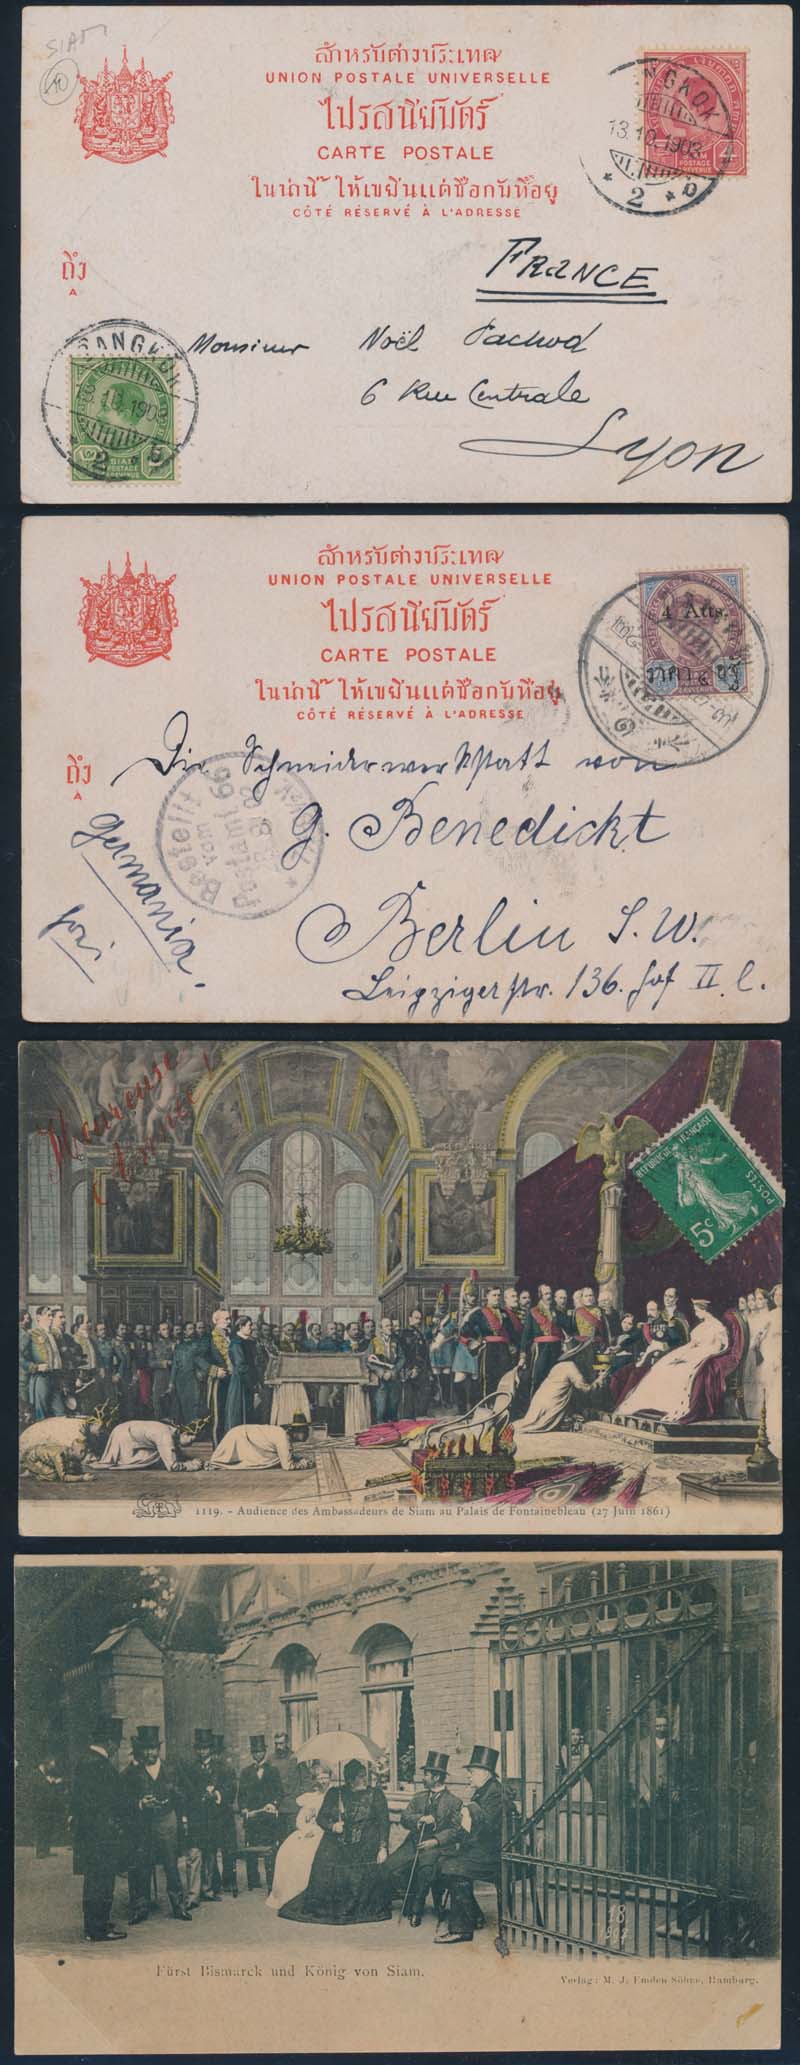 SIAM
10
สำหรับต่างประเทศ
UNION POSTALE UNIVERSELLE
ไปรสนียบัตร์
CARTE POSTALE
ในน่านี้ ให้เขียนแต่ชื่อกับที่อยู่
CÔTÉ RÉSERVÉ À L'ADRESSE
13.10.1903
2
SIAM
POSTAGE
& REVENUE
ถึง
A
FRANCE
Monsieur Noël Pachod
6 Rue Centrale
Lyon
BANGKOK
2
SIAM
POSTAGE
& REVENUE
สำหรับต่างประเทศ
UNION POSTALE UNIVERSELLE
ไปรสนียบัตร์
CARTE POSTALE
ในน่านี้ ให้เขียนแต่ชื่อกับที่อยู่
CÔTÉ RÉSERVÉ À L'ADRESSE
4 Atts.
ราคา ๔ อัฐ
ถึง
A
Die Schneiderwerkstatt von
G. Benedickt
Berlin S.W.
Leipzigerstr. 136. Hof II l.
Germania.
Bestellt
vom
Postamt 66
Heureuse
Année!
REPUBLIQUE FRANÇAISE
POSTES
5c
1119. - Audience des Ambassadeurs de Siam au Palais de Fontainebleau (27 Juin 1861)
18
907
Fürst Bismarck und König von Siam.
Verlag: M. J. Emden Söhne, Hamburg.